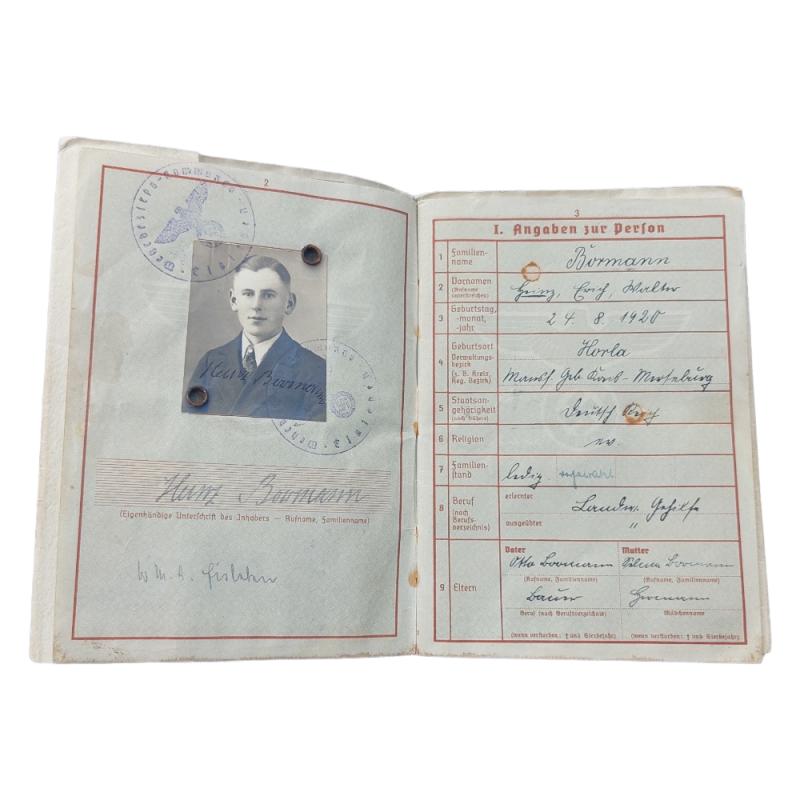 2
Heinz Bormann
Heinz Bormann
(Eigenhändige Unterschrift des Inhabers — Rufname, Familienname)
W. M. A.
3
I. Angaben zur Person
1 Familien-
name
Bormann
2 Vornamen
(Rufname
unterstreichen)
Heinz, Erich, Walter
3 Geburtstag,
-monat,
-jahr
24. 8. 1920
4 Geburtsort
Verwaltungs-
bezirk
(z. B. Kreis,
Reg. Bezirk)
Horla
Mansf. Geb. Kreis-Merseburg
5 Staatsan-
gehörigkeit
(auch frühere)
Deutsch Reich
6 Religion
ev.
7 Familien-
stand
ledig
8 Beruf
(nach
Berufs-
verzeichnis)
erlernter
Landw. Gehilfe
ausgeübter
"
9 Eltern
Vater
Otto Bormann
(Rufname, Familienname)
Bauer
Beruf (nach Berufsverzeichnis)
(wenn verstorben: † und Sterbejahr)
Mutter
Selma Bormann
(Rufname, Familienname)
Mädchenname
(wenn verstorben: † und Sterbejahr)